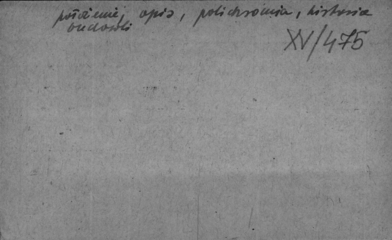 położenie, opis, polichromia, historia
budowli
XV/475